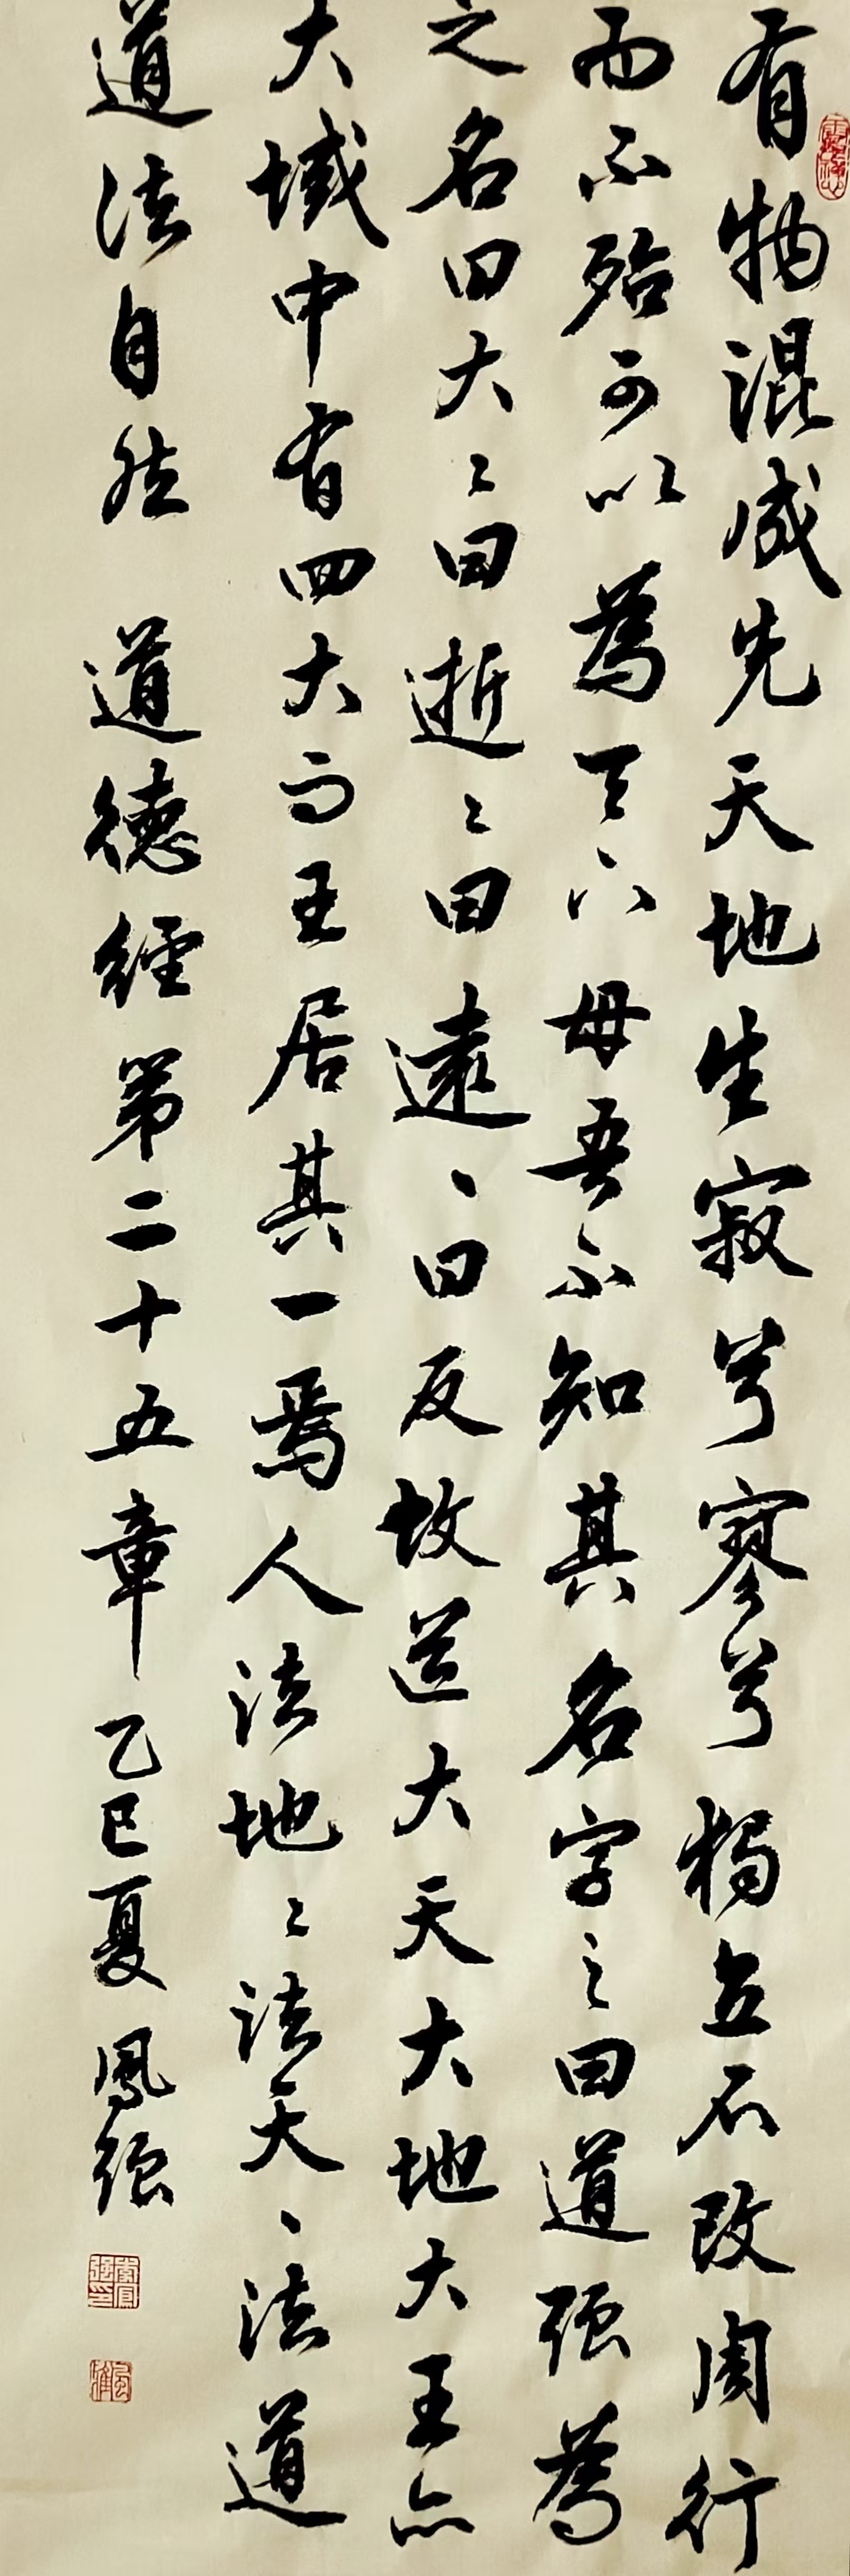 有物混成先天地生寂兮寥兮獨立不改周行
而不殆可以為天下母吾不知其名字之曰道强為
之名曰大々曰逝々曰遠、曰反故道大天大地大王亦
大域中有四大而王居其一焉人法地々法天、法道
道法自然 道德經第二十五章 乙巳夏 鳳强